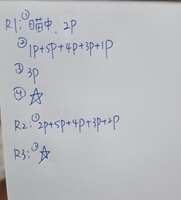 R1: ① 瞄中、2P
② 1P+5P+4P+3P+1P
③ 3P
④ ☆
R2: ① 2P+5P+4P+3P+2P
R3: ② ☆